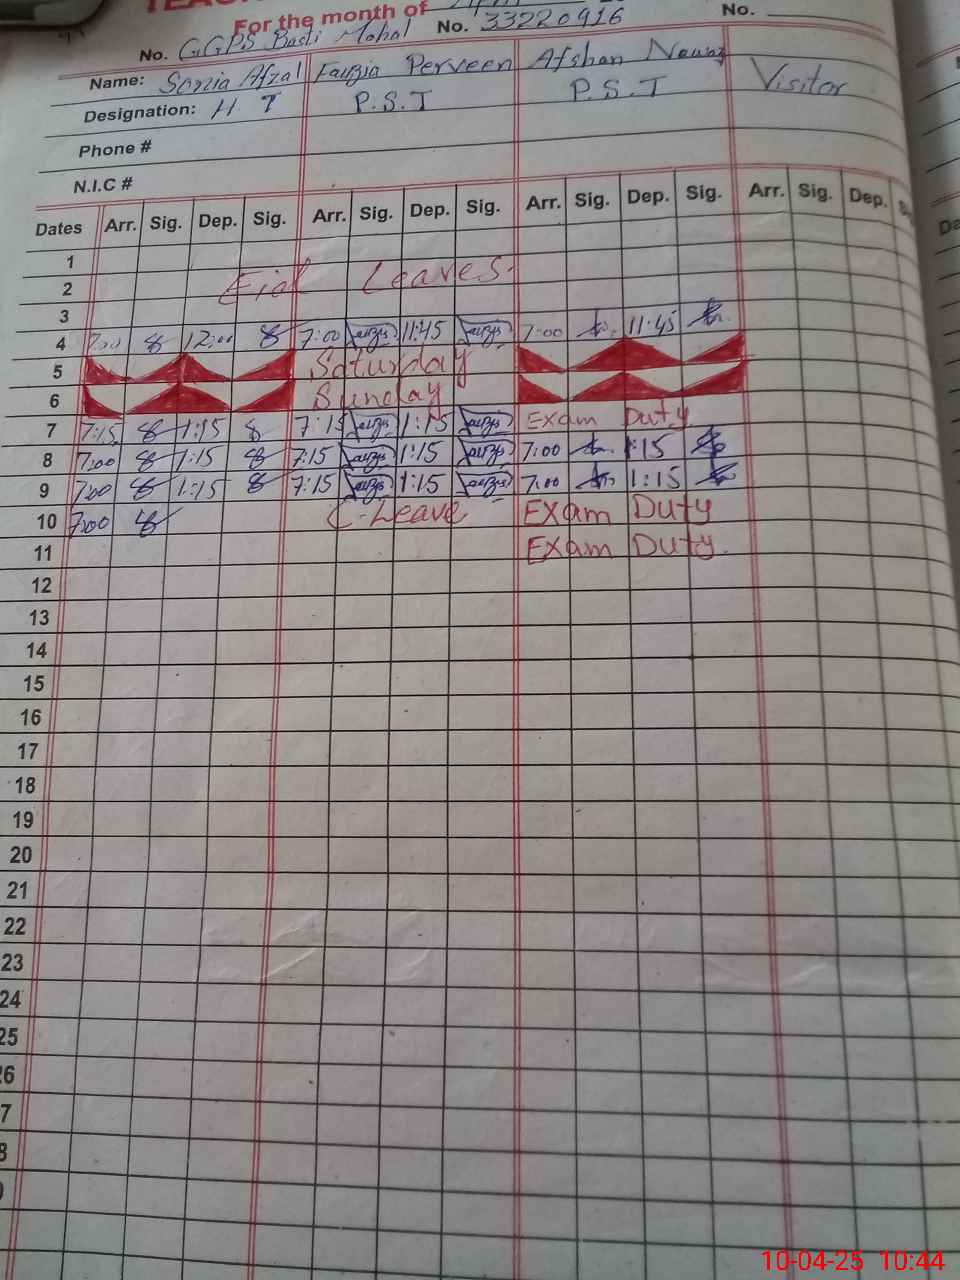 For the month of April
No. GGPS Basti Mahal No. 33220916 No.
Name: Sonia Afzal Fauzia Perveen Afshan Nawaz Visitor
Designation: H T P.S.T P.S.T
Phone #
N.I.C #
Dates Arr. Sig. Dep. Sig. Arr. Sig. Dep. Sig. Arr. Sig. Dep. Sig. Arr. Sig. Dep.
1
2 Eid Leaves.
3
4 7:00 12:00 7:00 Fauzia 11:45 Fauzia 7:00 11:45
5 Saturday
6 Sunday
7 7:15 1:15 7:15 Fauzia 1:15 Fauzia Exam Duty
8 7:00 1:15 7:15 Fauzia 1:15 Fauzia 7:00 1:15
9 7:00 1:15 7:15 Fauzia 1:15 Fauzia 7:00 1:15
10 7:00 C-Leave Exam Duty
11 Exam Duty.
12
13
14
15
16
17
18
19
20
21
22
23
24
25
26
7
8
10-04-25 10:44